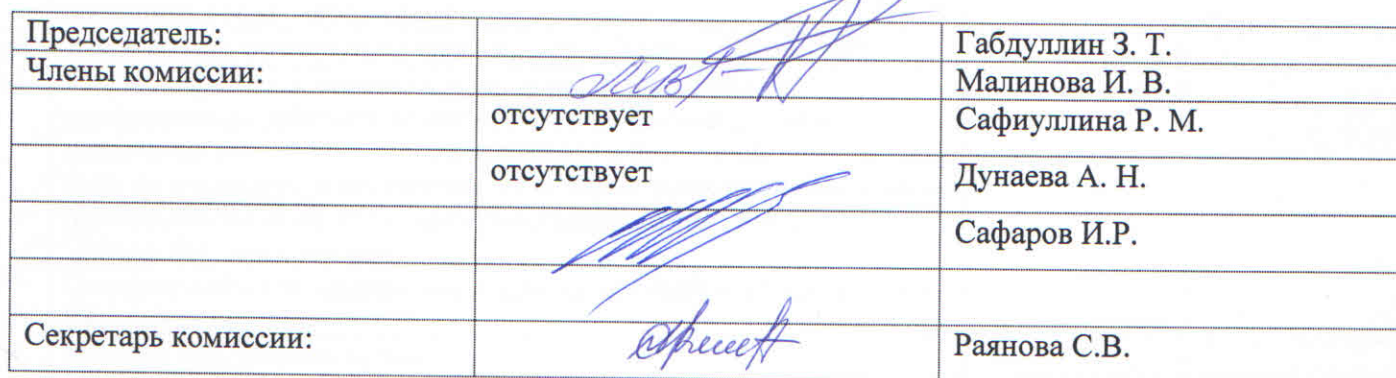 Председатель: Габдуллин З. Т.
Члены комиссии: Малинова И. В.
отсутствует Сафиуллина Р. М.
отсутствует Дунаева А. Н.
Сафаров И.Р.
Секретарь комиссии: Раянова С.В.